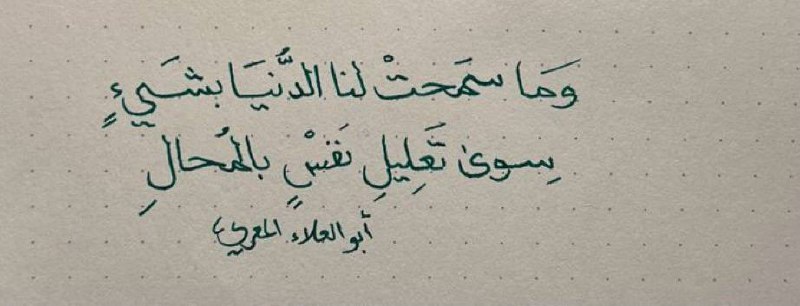 وَمَا سمَحتْ لنا الدُّنيَا بشَيءٍ
سِوىٰ تَعلِيلِ نَفسٍْ بالمُحالِ
أبو العلاء المعري